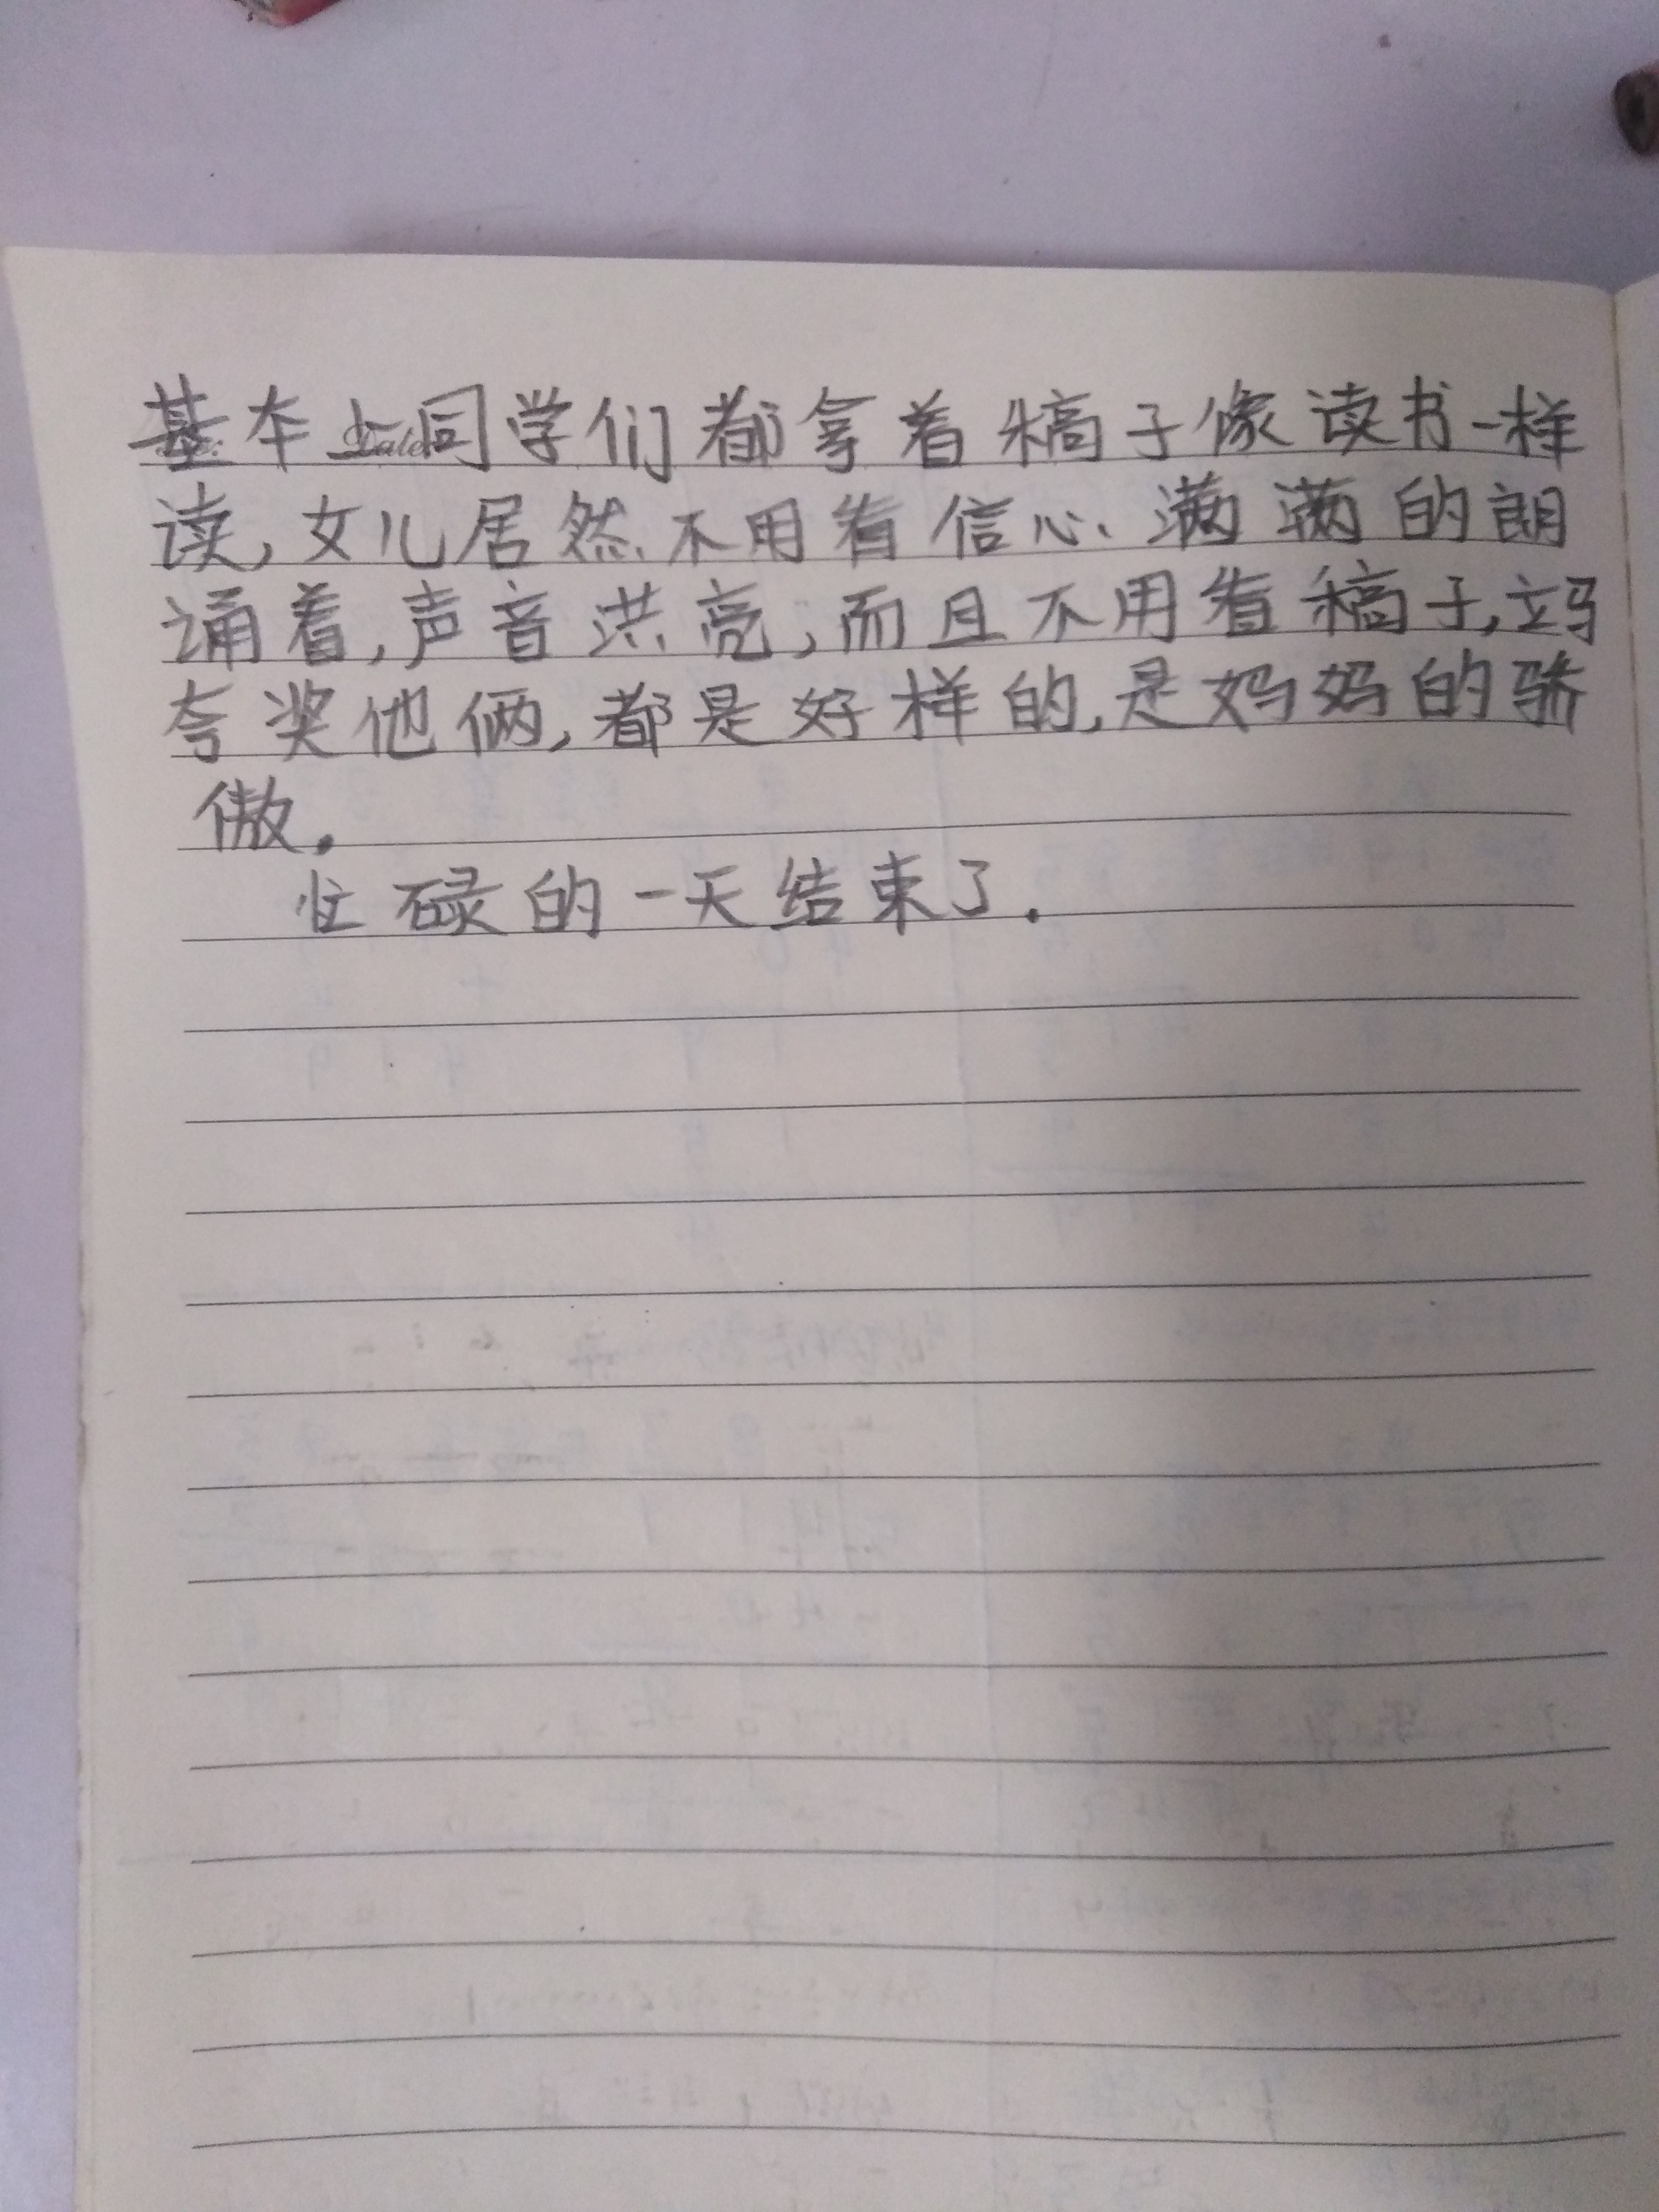 基本上同学们都拿着稿子像读书一样
读,女儿居然不用看信心满满的朗
诵着,声音洪亮,而且不用看稿子,
夸奖他俩,都是好样的,是妈妈的骄
傲.
忙碌的一天结束了.